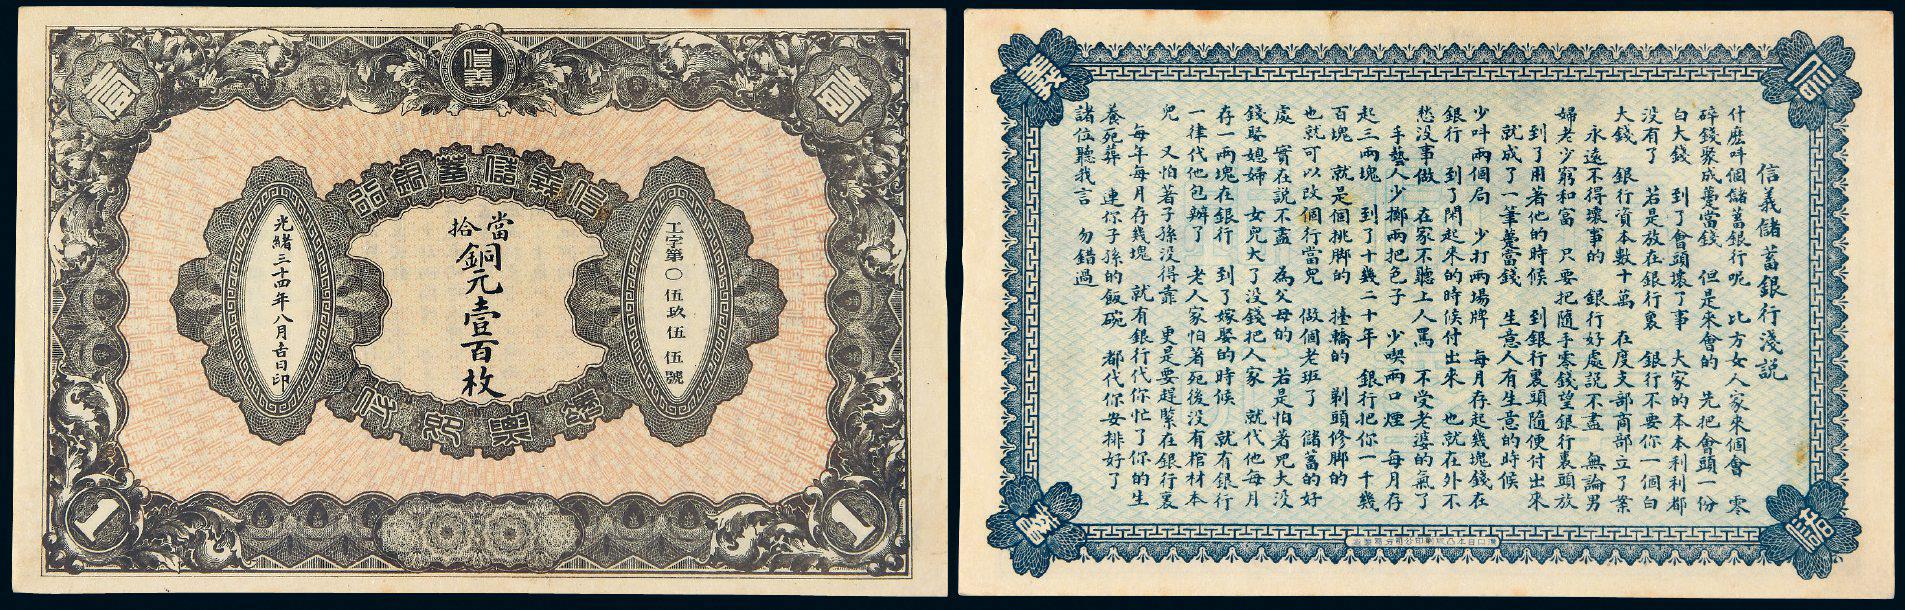 信義
壹
壹
信義儲蓄銀行
當拾
銅元壹百枚
工字第〇伍玖伍伍號
光緒三十四年八月吉日印
1
1
信
義
儲
蓄
信義儲蓄銀行淺説
什麽呌個儲蓄銀行呢 比方女人家來個會 零
碎錢聚成躉當錢 但是來會的 先把會頭一份
白大錢 到了會頭壞了事 大家的本本利利都
没有了 若是放在銀行裏 銀行不要你一個白
大錢 銀行資本數十萬 在度支部商部立了案
永遠不得壞事的 銀行好處説不盡 無論男
婦老少窮和富 只要把隨手零錢望銀行裏頭放
到了用著他的時候 到銀行裏頭隨便付出來
就成了一筆躉當錢 生意人有生意的時候
少呌兩個局 少打兩場牌 每月存起幾塊錢在
銀行 到了閑起來的時候付出來 也就在外不
愁没事做 在家不聽上人罵 不受老婆的氣了
手藝人少擲兩把色子 少喫兩口煙 每月存
起三兩塊 到了十幾二十年 銀行把你一千幾
百塊 就是個挑脚的 擡轎的 剃頭修脚的
也就可以改個行當兒 做個老班了 儲蓄的好
處 實在説不盡 為父母的 若是怕者兒大没
錢娶媳婦 女兒大了没錢把人家 就代他每月
存一兩塊在銀行 到了嫁娶的時候 就有銀行
一律代他包辦了 老人家怕著死後没有棺材本
兒 又怕著子孫没得靠 更是要趕緊在銀行裏
每年每月存幾塊 就有銀行代你忙了你的生
養死葬 連你子孫的飯碗 都代你安排好了
諸位聽我言 勿錯過